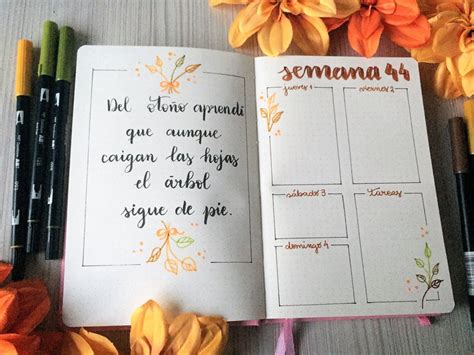 Del otoño aprendí
que aunque
caigan las hojas
el árbol
sigue de pie.
semana 44
jueves 1
viernes 2
sábado 3
tareas
domingo 4